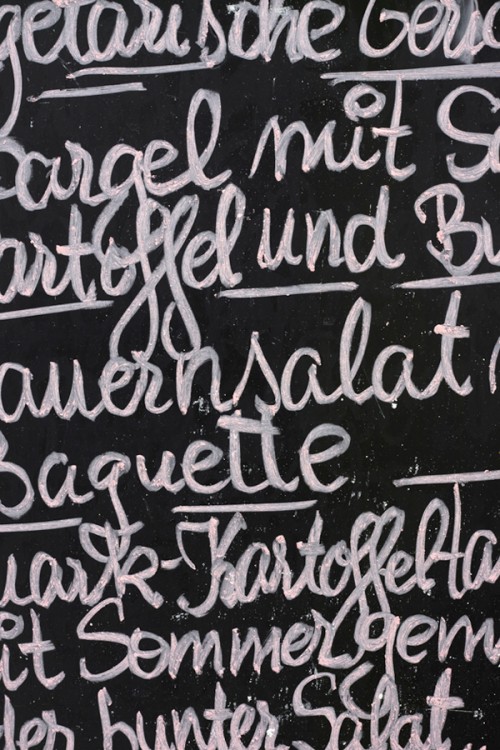 getarische Geric
pargel mit S
artoffel und Bu
auernsalat
Baguette
uark-Kartoffelta
it Sommergem
der bunter Salat